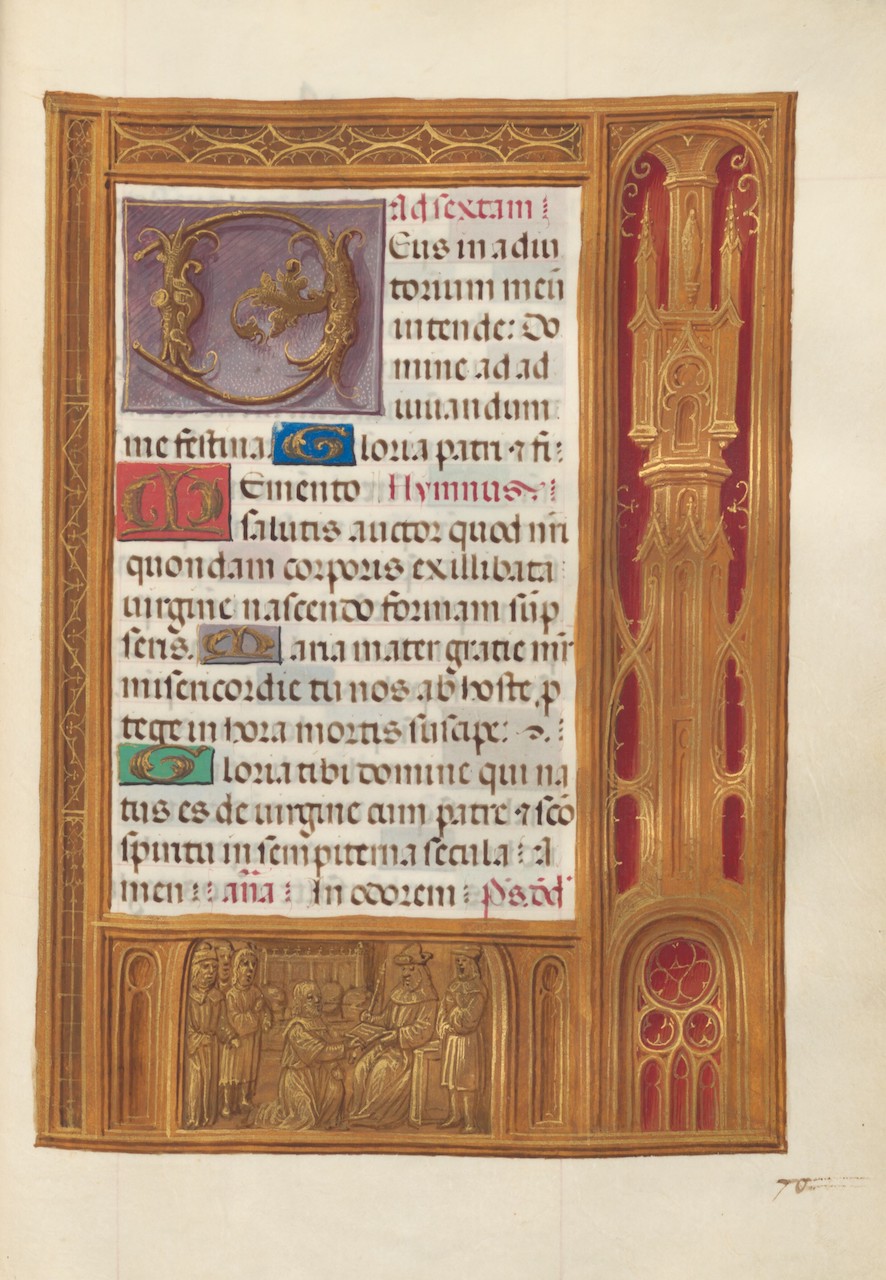 Ad sextam :
Deus in adiu
torium meū
intende: Do
mine ad ad
iuuandum
me festina. Gloria patri ⁊ fi:
Memento Hymnus
salutis auctor quod nr̄i
quondam corporis ex illibata
uirgine nascendo formam sūp
seris. Maria mater gratie mr̄
misericordie tu nos ab hoste p
tege in hora mortis suscipe: :
Gloria tibi domine qui na
tus es de uirgine cum patre ⁊ scō
spiritu in sempiterna secula : A
men : : an̄a : In odorem : Ps. dd̄
70